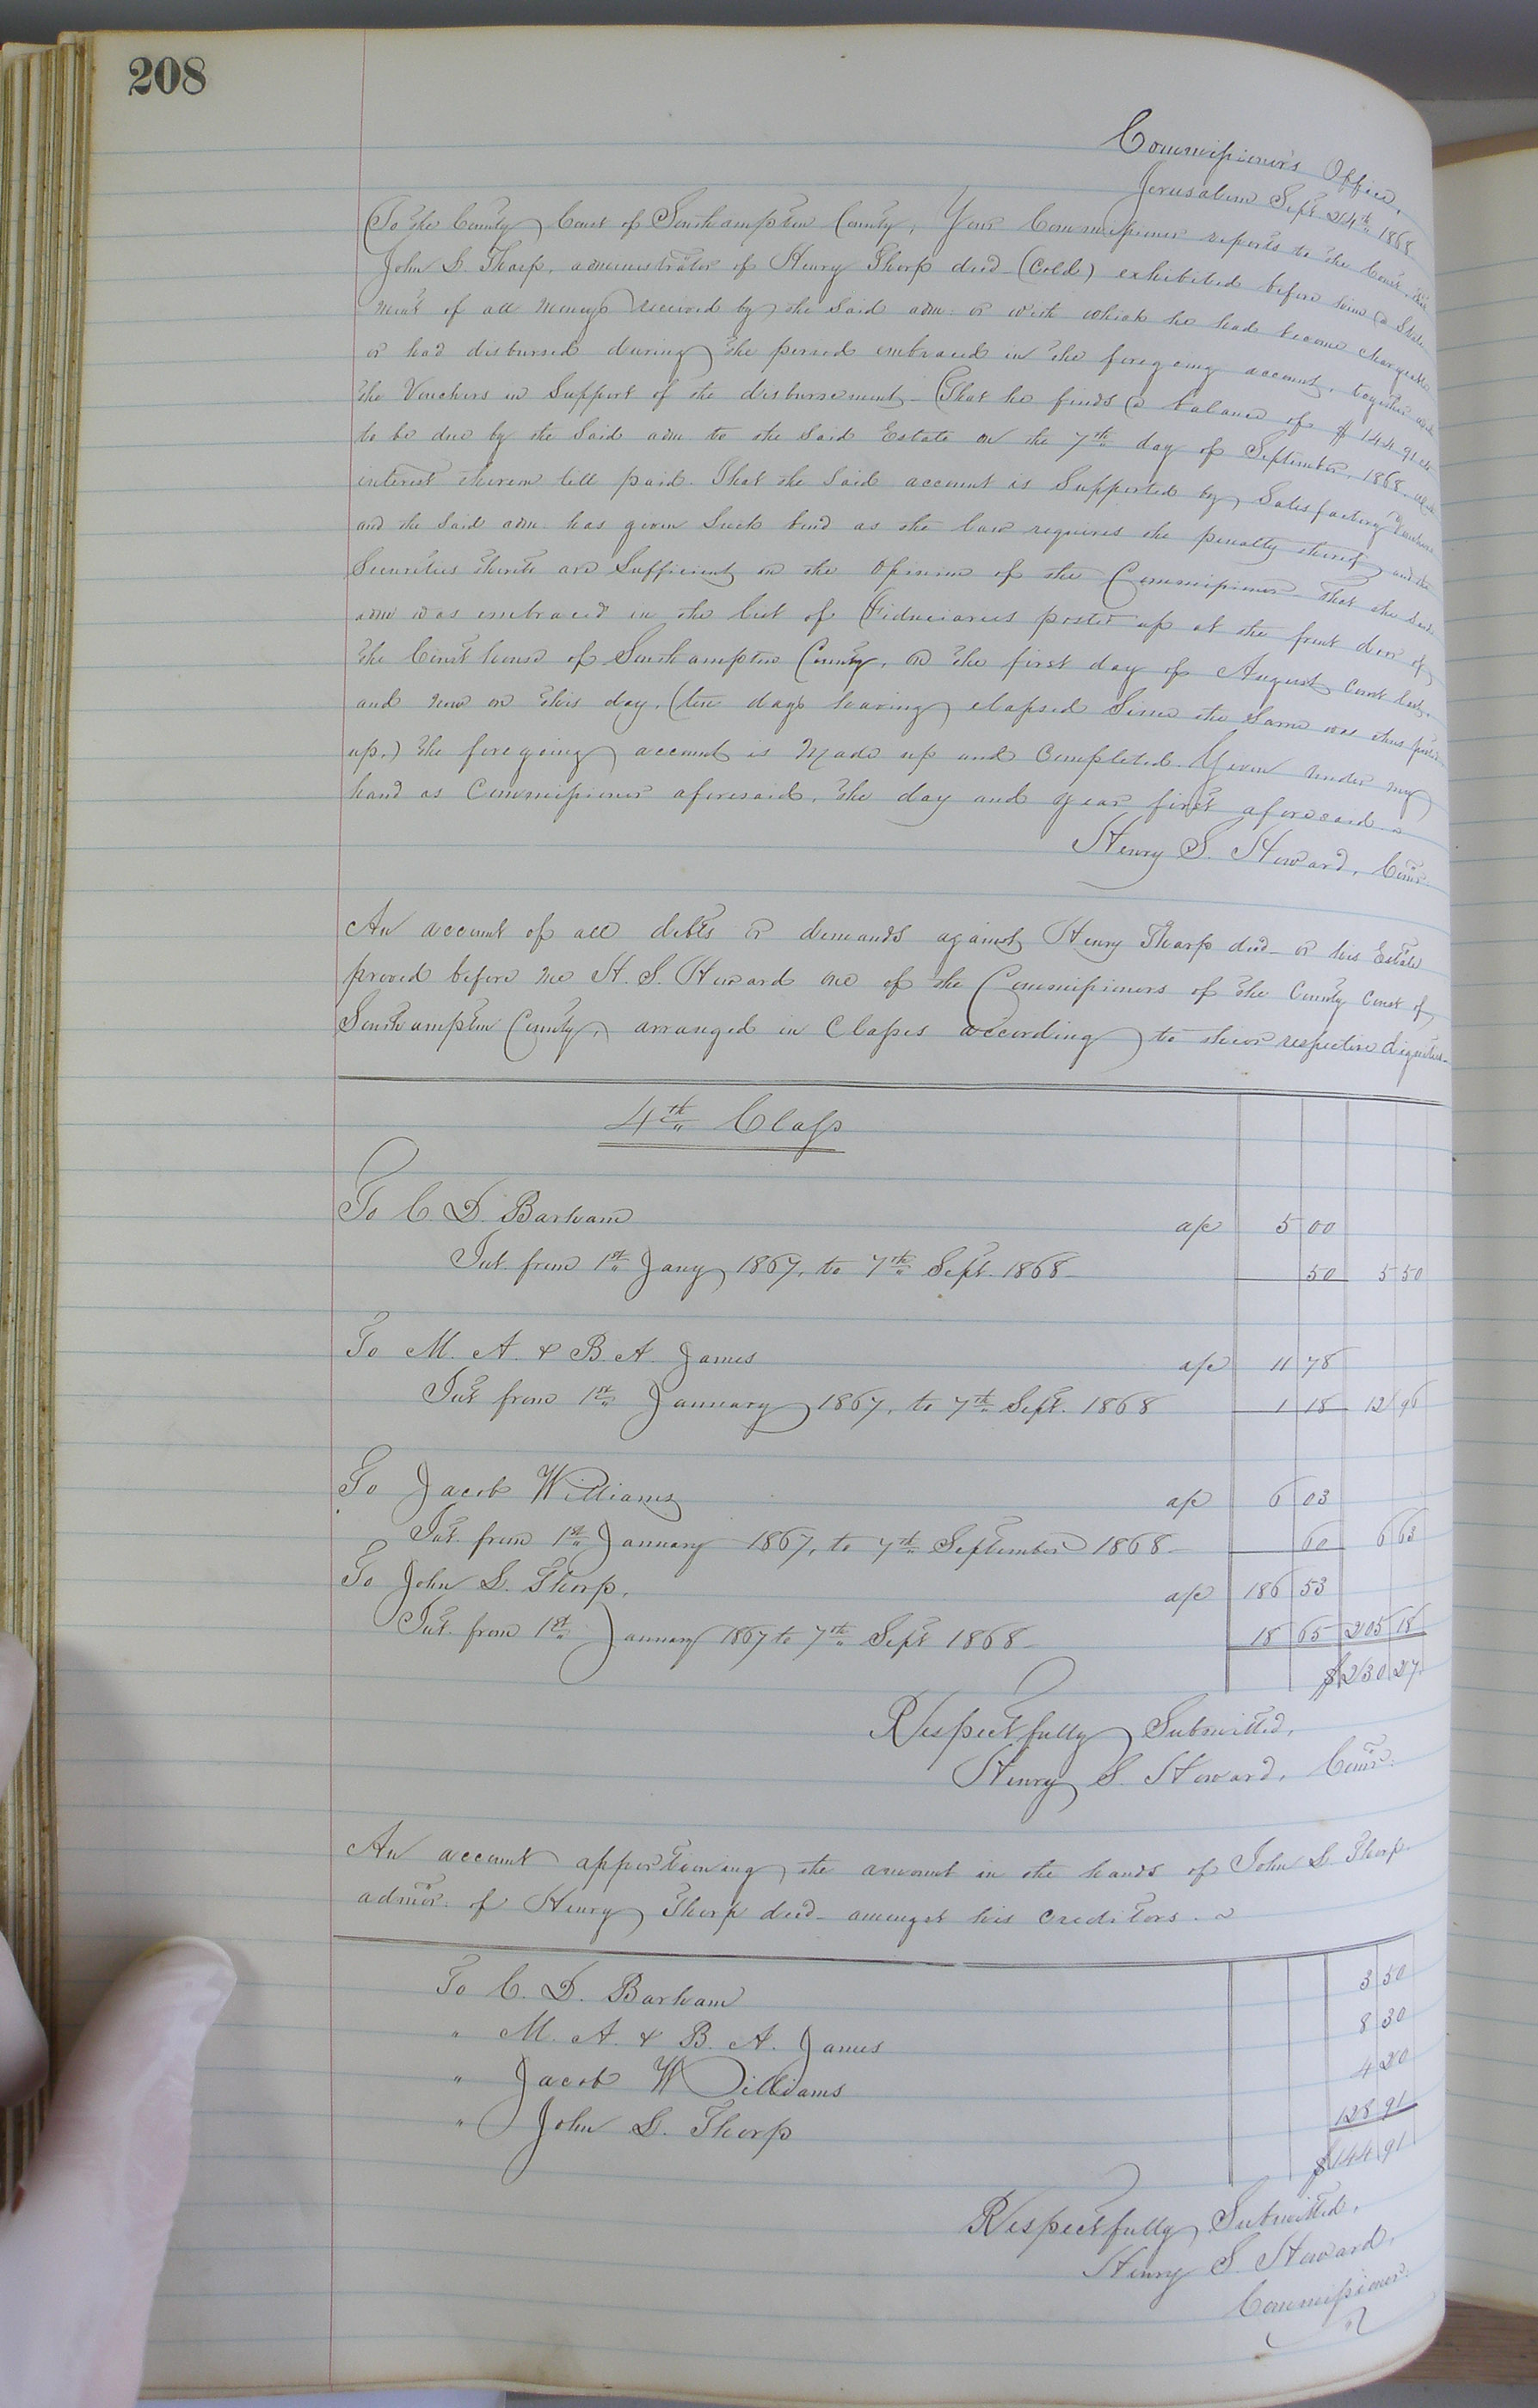 208
Commissioner's Office,
Jerusalem Sept. 24th 1868
To the County Court of Southampton County, Your Commissioner reports to the Court, that
John L. Thorp, administrator of Henry Thorp decd (Cold) exhibited before him a State
ment of all moneys received by the said adm: or with which he had become chargeable
or had disbursed during the period embraced in the foregoing account, together with
the Vouchers in Support of the disbursement. That he finds a balance of $144.91 cts
to be due by the Said adm to the Said Estate on the 7th day of September, 1868, with
interest thereon till paid. That the Said account is Supported by Satisfactory Vouchers
and the Said adm has given Such bond as the law requires the penalty thereof and the
Securities thereto are Sufficient in the Opinion of the Commissioner That the Said
adm was embraced in the list of Fiduciaries posted up at the front door of
the Court house of Southampton County, on the first day of August Court last,
and now on this day, (ten days having elapsed Since the Same was thus posted
up,) the foregoing account is Made up and Completed. Given under my
hand as Commissioner aforesaid, the day and year first aforesaid
Henry S. Howard, Comr.
An account of all debts or demands against Henry Thorp decd or his Estate
proved before me H. S. Howard one of the Commissioners of the County Court of
Southampton County, arranged in Classes according to their respective dignities
4th Class
To C. D. Barham a/c 5 00
Int. from 1st Jany 1867, to 7th Sept. 1868 50 5 50
To M. A. & B. A. James a/c 11 78
Int from 1st January 1867, to 7th Sept. 1868 1 18 12 96
To Jacob Williams a/c 6 03
Int. from 1st January 1867, to 7th September 1868 60 6 63
To John L. Thorp, a/c 186 53
Int. from 1st January 1867 to 7th Sept 1868 18 65 205 18
$230 27
Respectfully Submitted,
Henry S. Howard, Comr.
An account apportioning the amount in the hands of John L. Thorp
admor. of Henry Thorp decd amongst his Creditors.
To C. D. Barham 3 50
" M. A. & B. A. James 8 30
" Jacob Williams 4 20
" John L. Thorp 128 91
$144 91
Respectfully Submitted,
Henry S. Howard,
Commissioner.